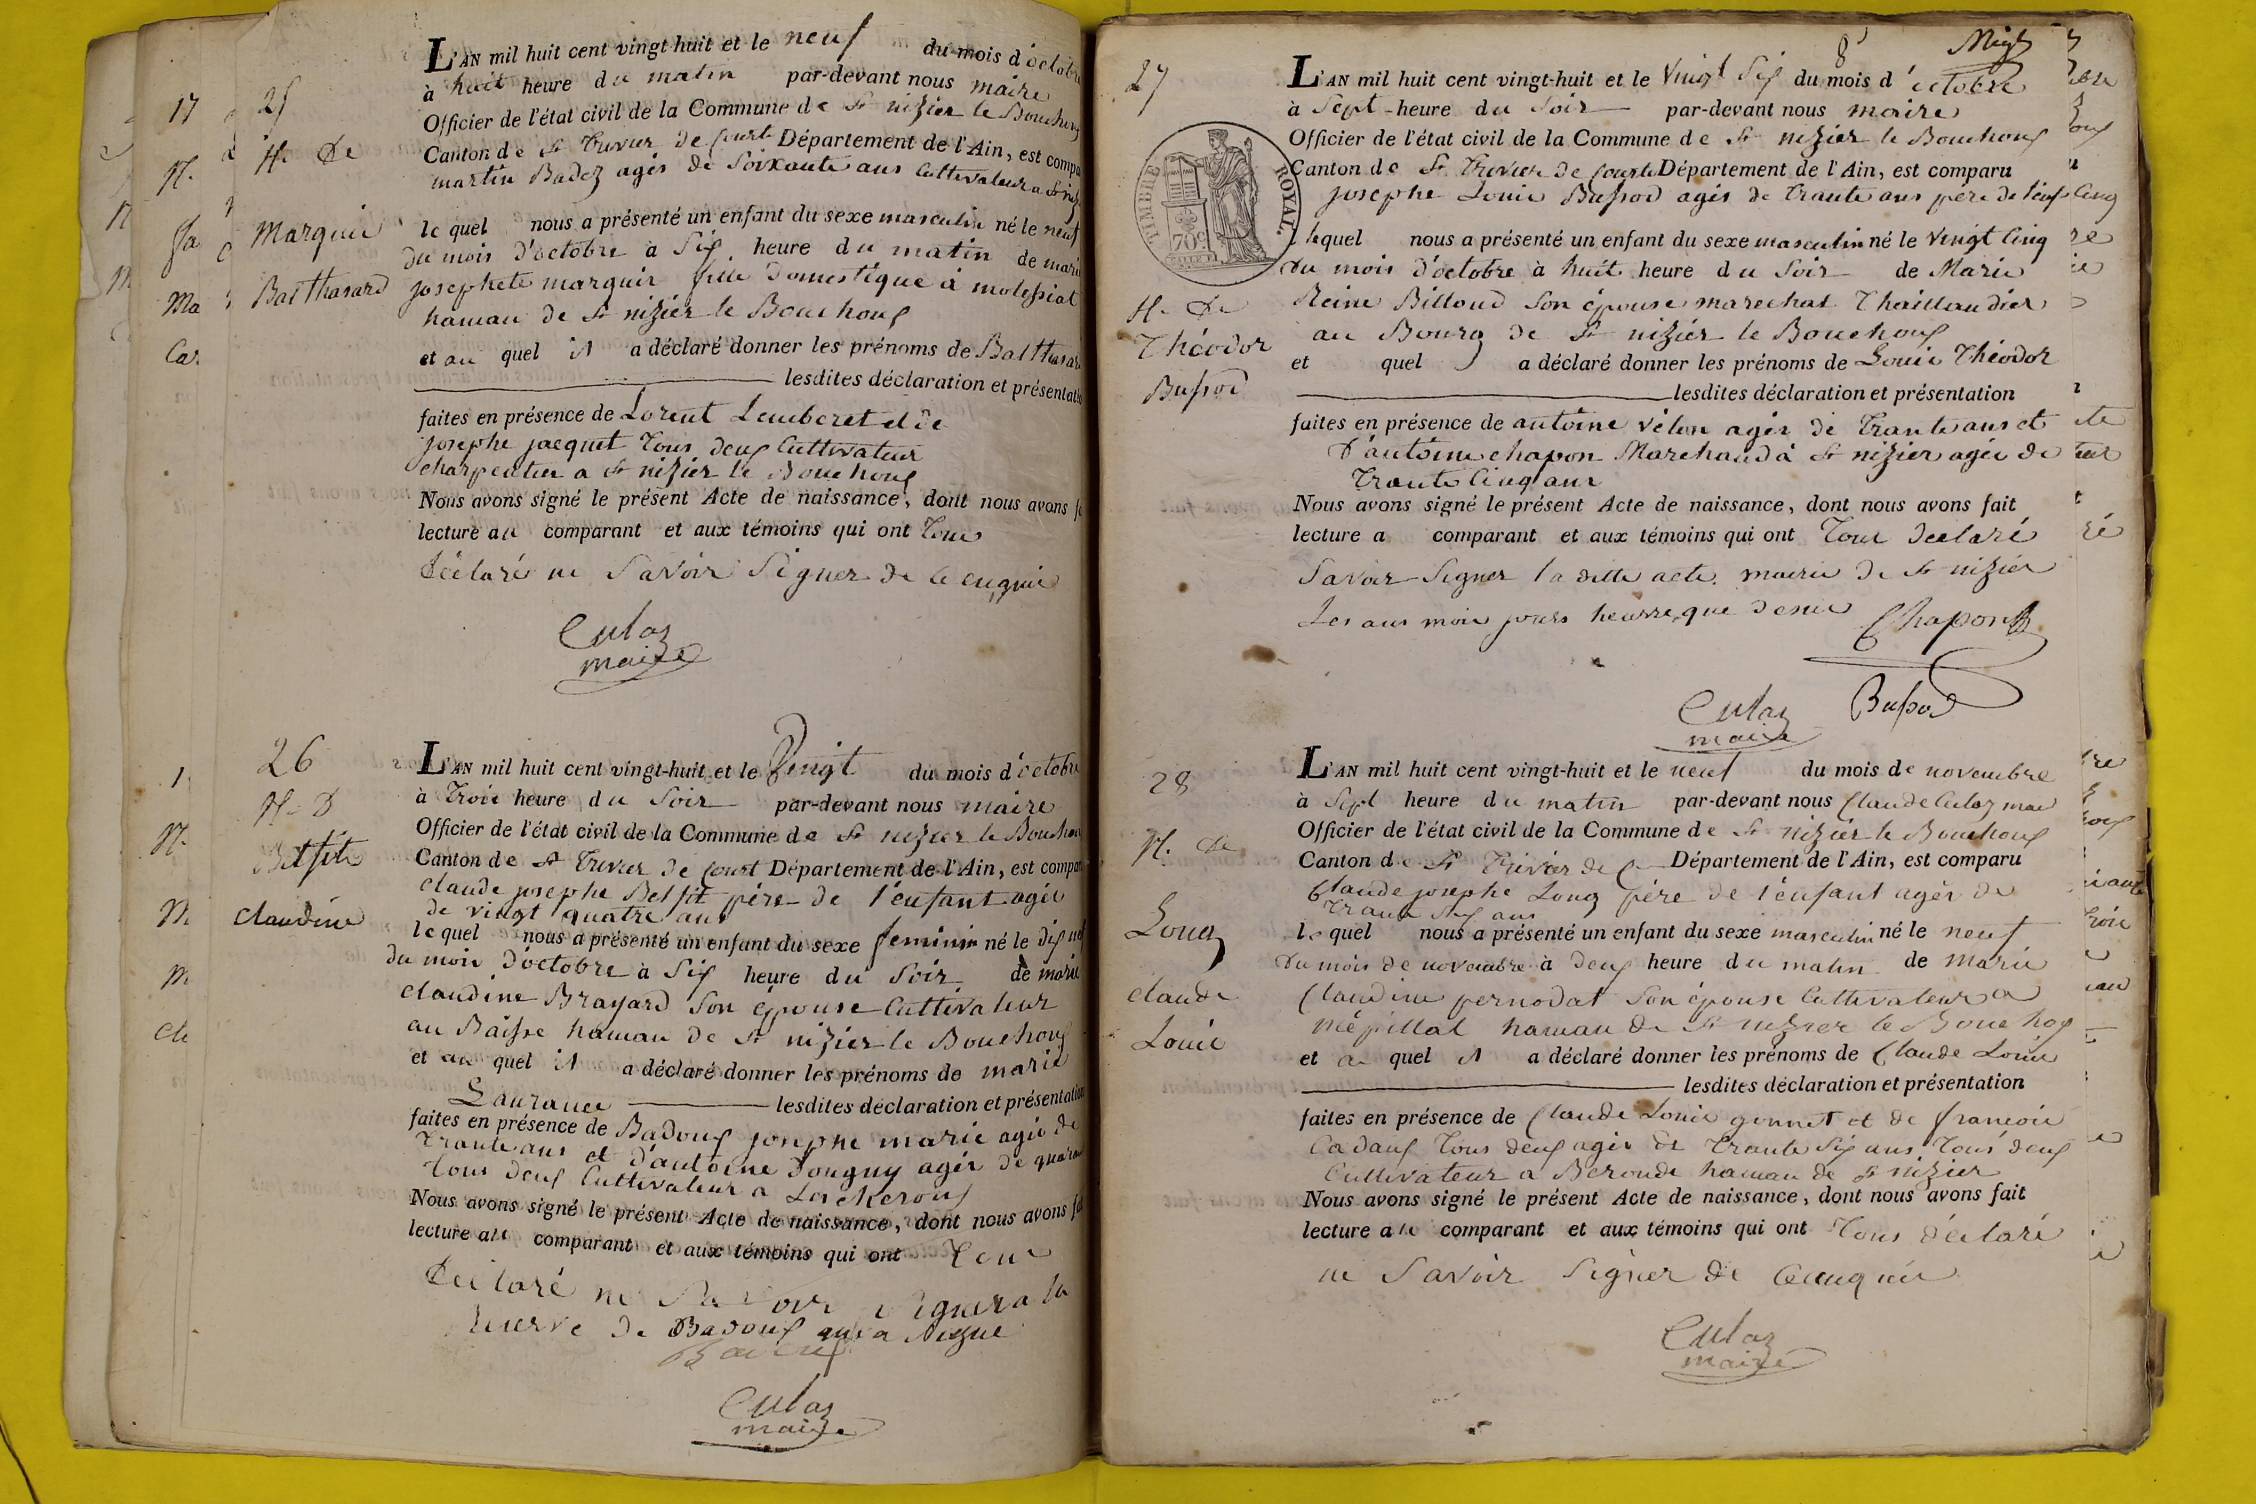 25
N. De
Marguin
Balthasard
L'AN mil huit cent vingt-huit et le neuf du mois d'octobre
à huit heure du matin par-devant nous maire
Officier de l'état civil de la Commune de St nizier le Bouchoux
Canton de St Trivier de Court Département de l'Ain, est compa
martin Badez agés de Soixante ans Cultivateur a St niz
le quel nous a présenté un enfant du sexe masculin né le neuf
du mois d'octobre à Six heure du matin de marie
josephete marguin fille Domestique à molessiat
hamau de St nizier le Bouchoux
et au quel il a déclaré donner les prénoms de Balthasar
lesdites déclaration et présentati
faites en présence de Lorent Lemberet et de
josephe jacquet Tous deux Cultivateur
charpentier a St nizier le Bouchoux
Nous avons signé le présent Acte de naissance, dont nous avons f
lecture au comparant et aux témoins qui ont Tous
Déclaré ne Savoir Signer de ce enquis
Culaz
maire
26
N. D
Belfit
Claudine
L'AN mil huit cent vingt-huit et le Vingt du mois d'octobre
à Trois heure du Soir par-devant nous maire
Officier de l'état civil de la Commune de St nizier le Bouchou
Canton de St Trivier de Court Département de l'Ain, est compa
Claude josephe Belfit père de l'enfant agée
de vingt quatre ans
le quel nous a présenté un enfant du sexe feminin né le dix neuf
du mois d'octobre à Six heure du Soir de marie
Claudine Brayard Son épouse Cultivateur
au Baisse hamau de St nizier le Bouchoux
et au quel il a déclaré donner les prénoms de marie
Laurance lesdites déclaration et présentation
faites en présence de Badoux josephe marie agée de
Trante ans et d'antoine Dougny agér de quara
Tous deux Cultivateur a
Nous avons signé le présent Acte de naissance, dont nous avons f
lecture au comparant et aux témoins qui ont Tous
Déclaré ne Savoir Signer a la
Reserve de Badoux qui a Signé
Culaz
maire
27
TIMBRE ROYAL
70c
N. De
Théodor
Bussod
L'AN mil huit cent vingt-huit et le Vingt Six du mois d'octobre
à Sept heure du Soir par-devant nous maire
Officier de l'état civil de la Commune de St nizier le Bouchoux
Canton de St Trivier de Courte Département de l'Ain, est comparu
josephe Louis Bussod agés de Trante ans père de l'enf
lequel nous a présenté un enfant du sexe masculin né le Vingt Cinq
du mois d'octobre à huit heure du Soir de Marie
Reine Billoud Son épouse marechal Thaillandier
au Bourg de St nizier le Bouchoux
et quel a déclaré donner les prénoms de Louis Théodor
lesdites déclaration et présentation
faites en présence de antoine vélon agés de Trante ans et
D'antoine chapon Marchand à St nizier agée de
Trante Cinq ans
Nous avons signé le présent Acte de naissance, dont nous avons fait
lecture a comparant et aux témoins qui ont Tous Declaré
Savoir Signer la ditte acte. mairie de St nizier
Les ans mois jours heurre que desus
Chapon
Culaz
maire
Bussod
28
N. De
Long
Claude
Louis
L'AN mil huit cent vingt-huit et le neuf du mois de novembre
à Sept heure du matin par-devant nous Claude Culaz mai
Officier de l'état civil de la Commune de St nizier le Bouchoux
Canton de St Trivier de C Département de l'Ain, est comparu
Claude josephe Long père de l'enfant agér de
Trante Six ans
le quel nous a présenté un enfant du sexe masculin né le neuf
du mois de novembre à deux heure du matin de Marie
Claudine pernodat Son épouse Cultivateur a
mépillat hamau de St nizier le Bouchox
et au quel il a déclaré donner les prénoms de Claude Louis
lesdites déclaration et présentation
faites en présence de Claude Louis gonnet et de françois
Cadaux Tous deux agér de Trante Six ans Tous deux
Cultivateur a Beronde hamau de St nizier
Nous avons signé le présent Acte de naissance, dont nous avons fait
lecture au comparant et aux témoins qui ont Tous déclaré
ne Savoir Signer de ce enquis
Culaz
maire